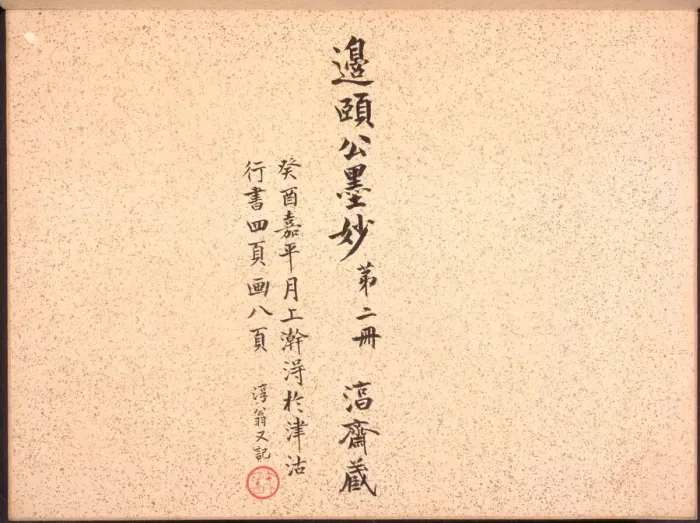 邊頤公墨妙 第二冊 㵆齋藏
癸酉嘉平月上澣淂於津沽
行書四頁画八頁 淳翁又記